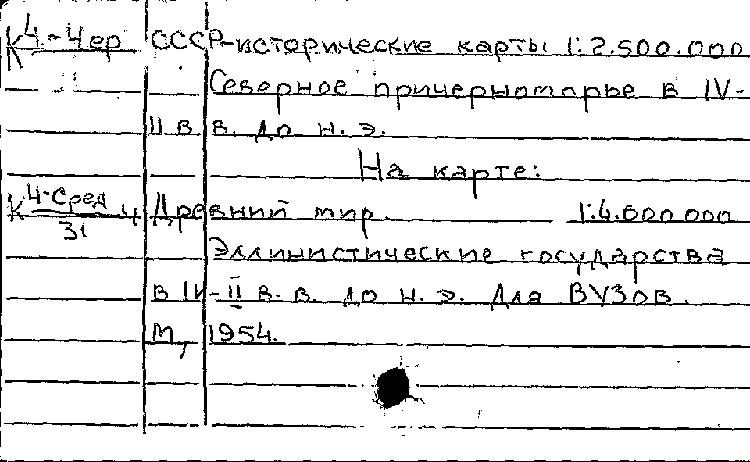 К 4-Чер СССР-исторические карты 1:2.500.000
Северное причерноморье в IV-
II в в. до н. э.
На карте:
К 4-Сред Древний мир. 1:4.000.000
31
Эллинистические государства
в IV-II в. в. до н. э. Для ВУЗов.
М, 1954.